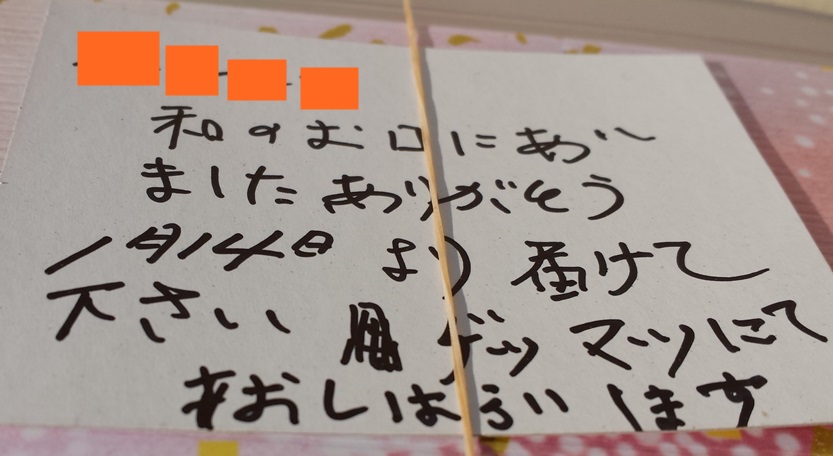 和のお口にあい
ました ありがとう
1月14日 より 届けて
下さい ゲツマツにて
おしはらい します